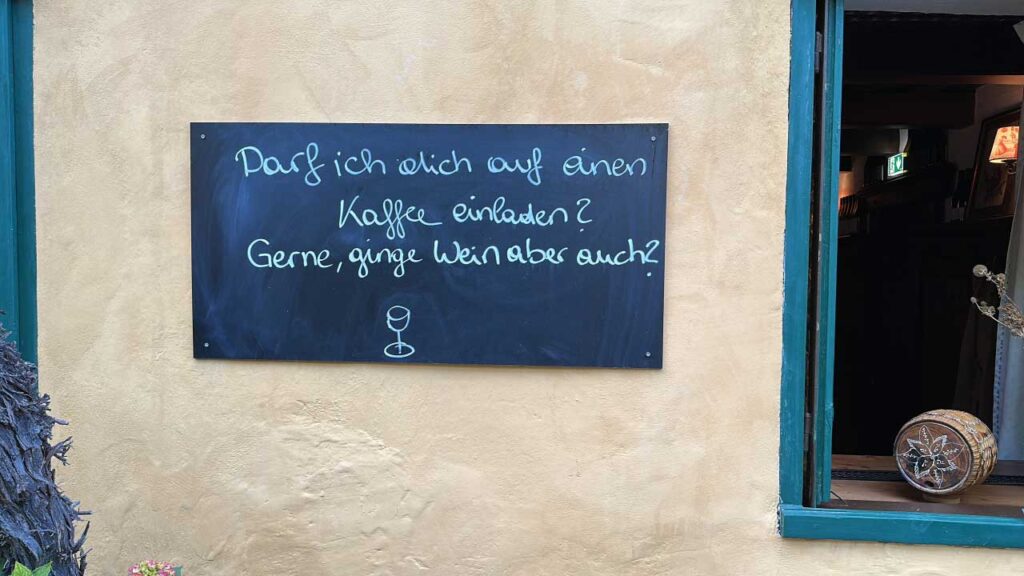 Darf ich dich auf einen
Kaffee einladen?
Gerne, ginge Wein aber auch?